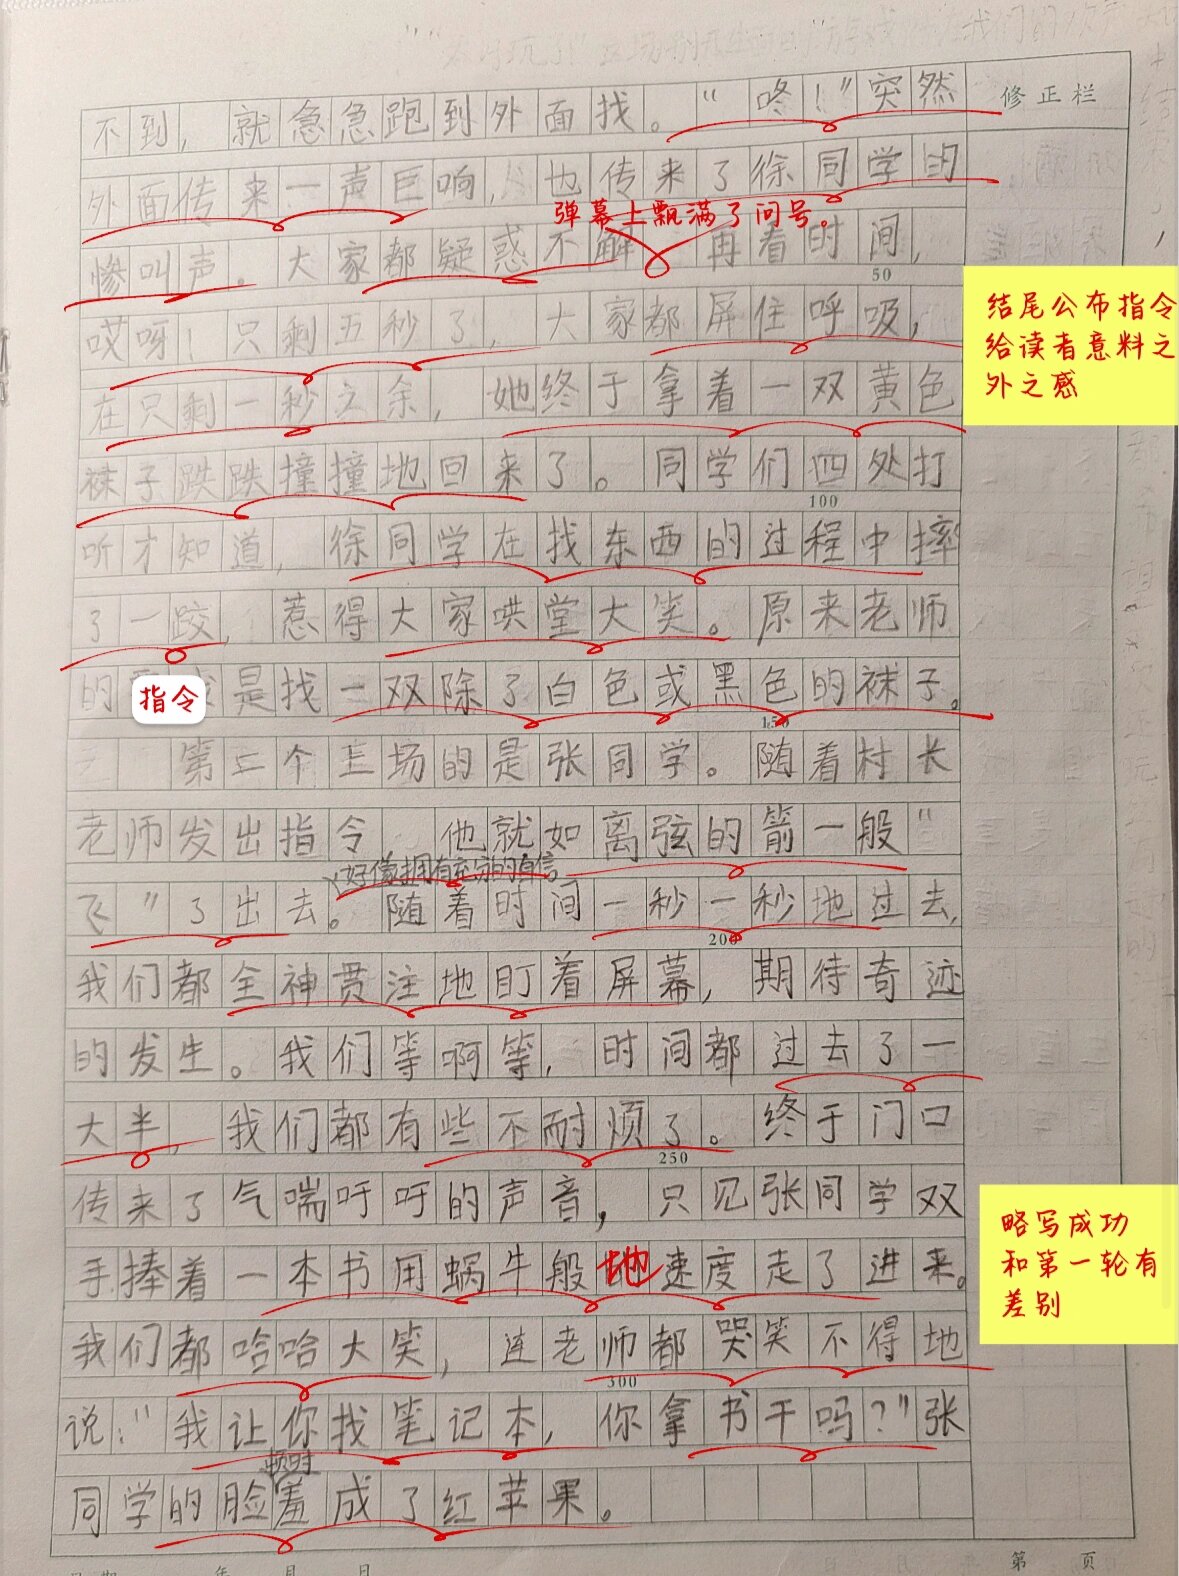 修正栏
不到，就急急跑到外面找。“咚！”突然
外面传来一声巨响，也传来了徐同学的
弹幕上飘满了问号。
惨叫声。大家都疑惑不解，再看时间，
50
哎呀！只剩五秒了，大家都屏住呼吸，
结尾公布指令
给读者意料之
外之感
在只剩一秒之余，她终于拿着一双黄色
袜子跌跌撞撞地回来了。同学们四处打
100
听才知道，徐同学在找东西的过程中摔
了一跤，惹得大家哄堂大笑。原来老师
的是找一双除了白色或黑色的袜子。
指令
150
第三个上场的是张同学。随着村长
老师发出指令 他就如离弦的箭一般“
好像拥有充分的自信
飞”了出去。随着时间一秒一秒地过去，
200
我们都全神贯注地盯着屏幕，期待奇迹
的发生。我们等啊等，时间都过去了一
大半，我们都有些不耐烦了。终于门口
250
传来了气喘吁吁的声音，只见张同学双
略写成功
和第一轮有
差别
手捧着一本书用蜗牛般地速度走了进来。
我们都哈哈大笑，连老师都哭笑不得地
300
说：“我让你找笔记本，你拿书干吗？”张
顿时
同学的脸羞成了红苹果。
年 月 日
第 页